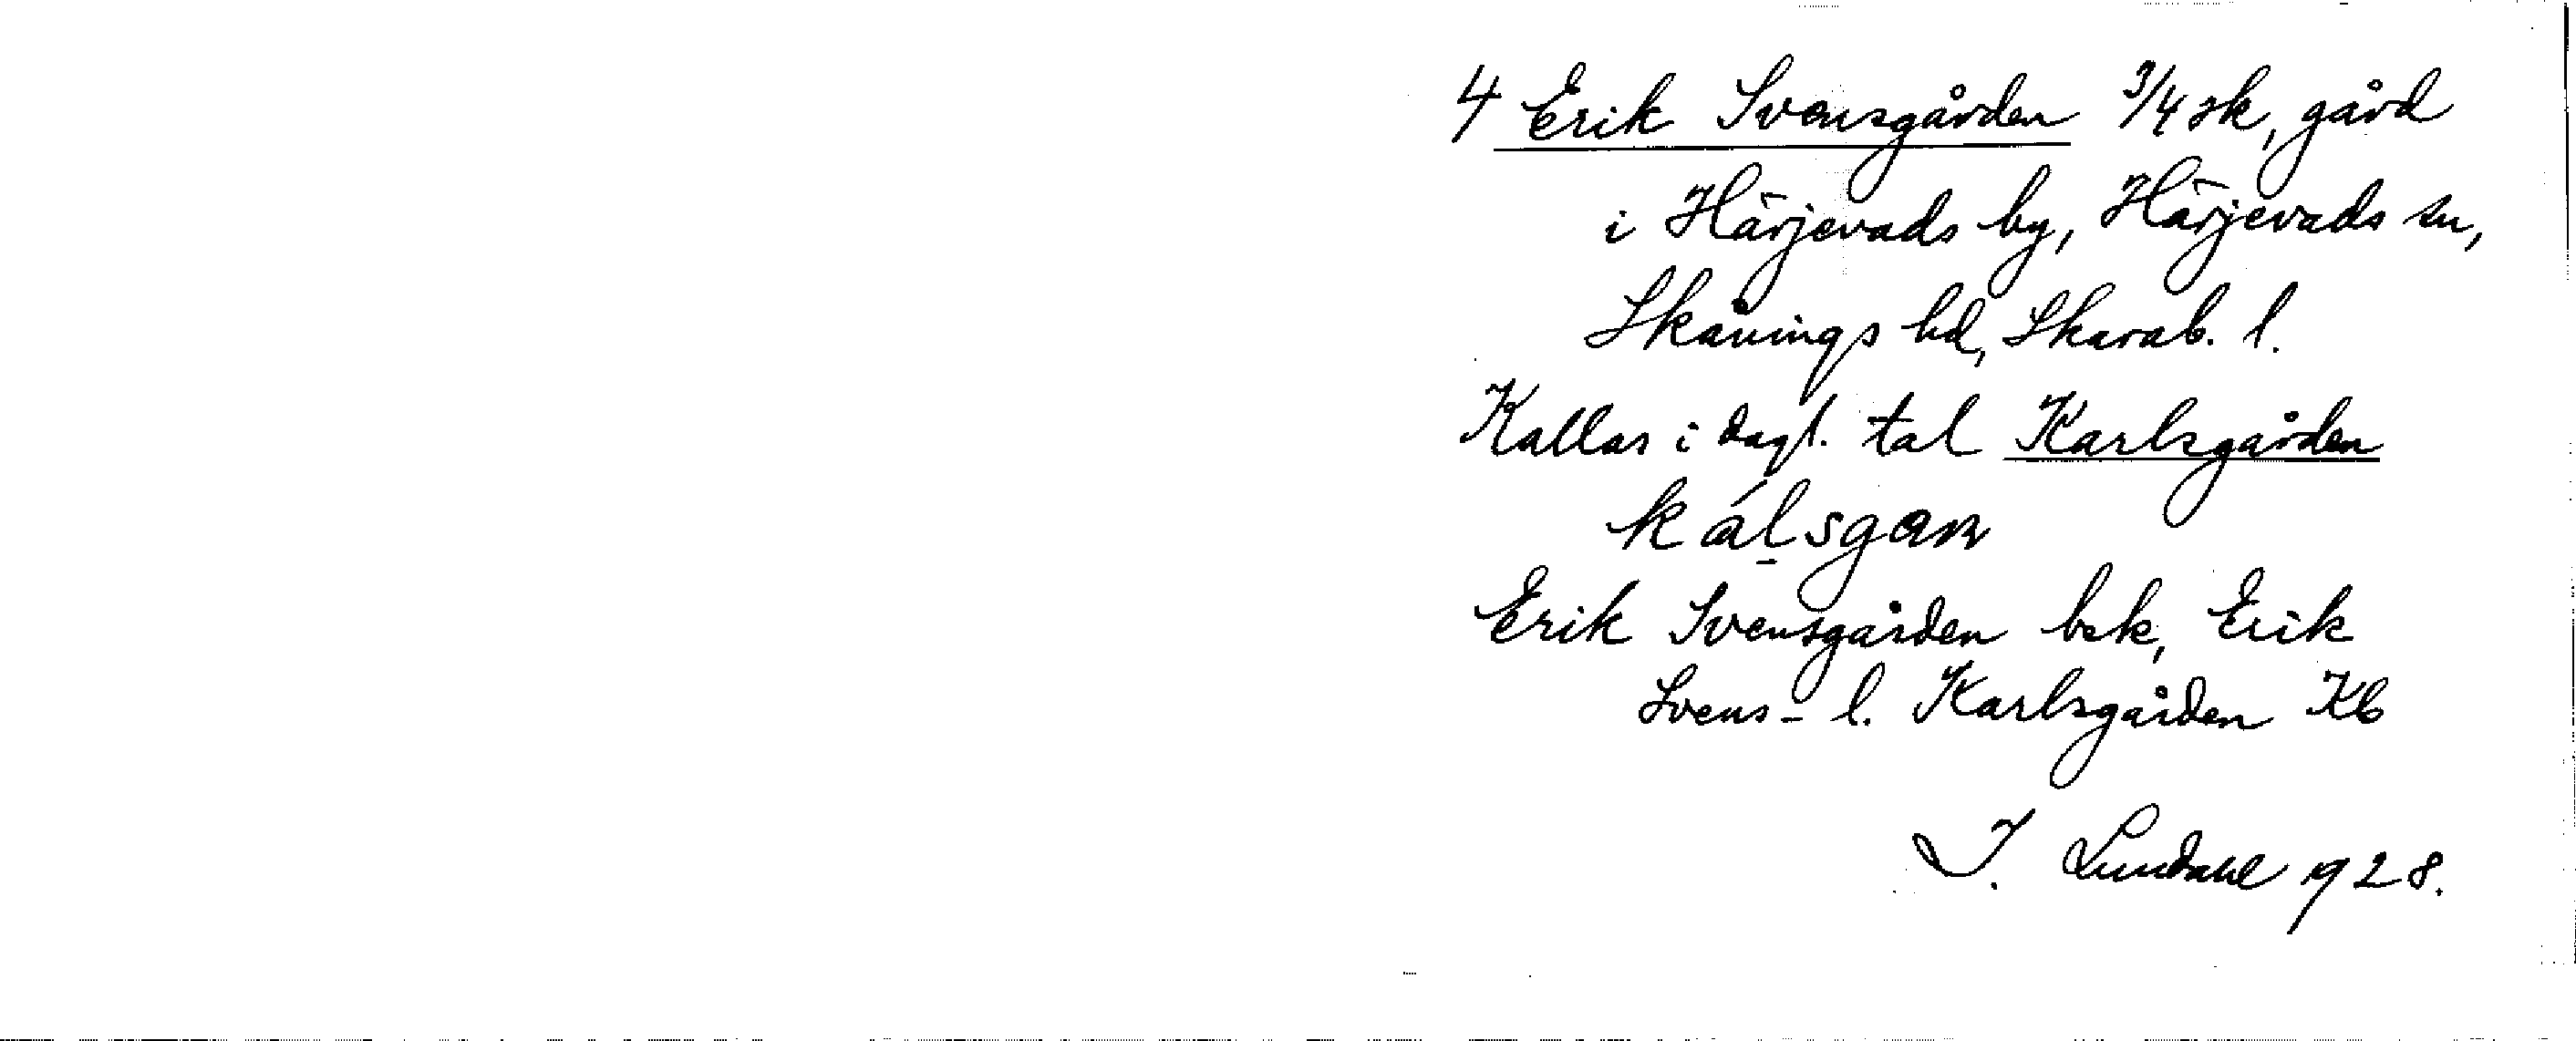 4 Erik Svensgården 3/4 sk, gård
i Härjevads by, Härjevads sn,
Skånings hd, Skarab. l.
Kallas i dagl. tal Karlsgården
kálsgan
Erik Svensgården bsk, Erik
Svens- l. Karlsgården Kb
I. Lundahl 1928.